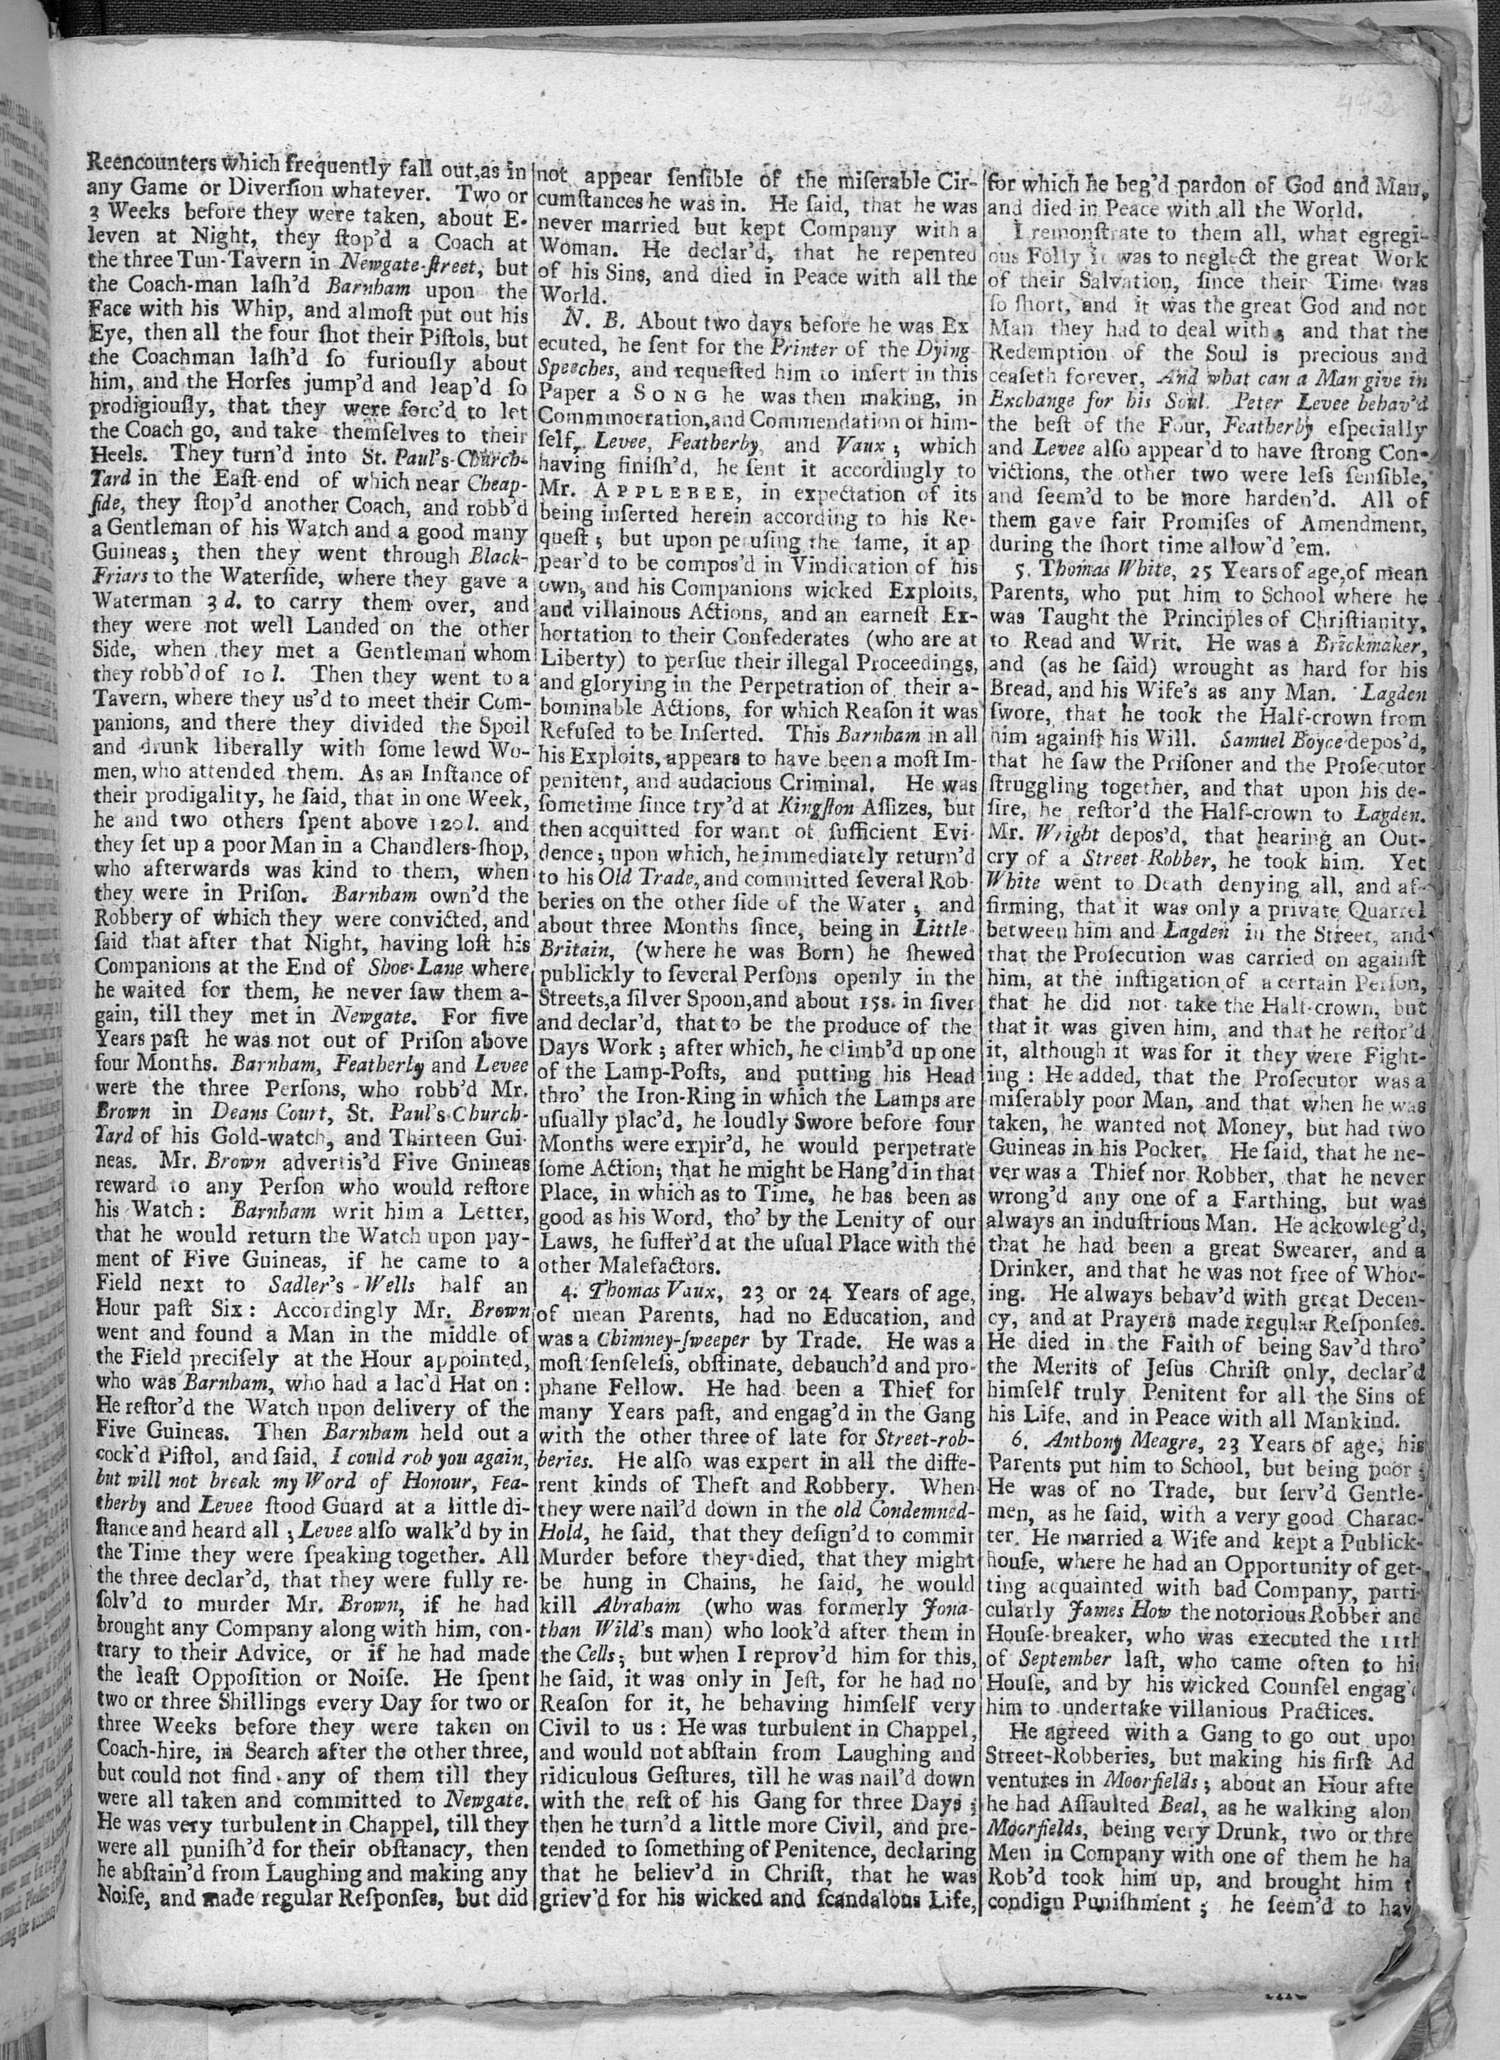 442
Reencounters which frequently fall out, as in
any Game or Diverſion whatever. Two or
3 Weeks before they were taken, about E-
leven at Night, they ſtop'd a Coach at
the three Tun-Tavern in Newgate-ſtreet, but
the Coach-man laſh'd Barnham upon the
Face with his Whip, and almoſt put out his
Eye, then all the four ſhot their Piſtols, but
the Coachman laſh'd ſo furiouſly about
him, and the Horſes jump'd and leap'd ſo
prodigiouſly, that they were forc'd to let
the Coach go, and take themſelves to their
Heels. They turn'd into St. Paul's-Church-
Yard in the Eaſt-end of which near Cheap-
ſide, they ſtop'd another Coach, and robb'd
a Gentleman of his Watch and a good many
Guineas; then they went through Black-
Friars to the Waterſide, where they gave a
Waterman 3 d. to carry them over, and
they were not well Landed on the other
Side, when they met a Gentleman whom
they robb'd of 10 l. Then they went to a
Tavern, where they us'd to meet their Com-
panions, and there they divided the Spoil
and drunk liberally with ſome lewd Wo-
men, who attended them. As an Inſtance of
their prodigality, he ſaid, that in one Week,
he and two others ſpent above 120 l. and
they ſet up a poor Man in a Chandlers-ſhop,
who afterwards was kind to them, when
they were in Priſon. Barnham own'd the
Robbery of which they were convicted, and
ſaid that after that Night, having loſt his
Companions at the End of Shoe-Lane where
he waited for them, he never ſaw them a-
gain, till they met in Newgate. For five
Years paſt he was not out of Priſon above
four Months. Barnham, Featherby and Levee
were the three Perſons, who robb'd Mr.
Brown in Deans Court, St. Paul's Church-
Yard of his Gold-watch, and Thirteen Gui-
neas. Mr. Brown advertis'd Five Gnineas
reward to any Perſon who would reſtore
his Watch: Barnham writ him a Letter,
that he would return the Watch upon pay-
ment of Five Guineas, if he came to a
Field next to Sadler's-Wells half an
Hour paſt Six: Accordingly Mr. Brown
went and found a Man in the middle of
the Field preciſely at the Hour appointed,
who was Barnham, who had a lac'd Hat on:
He reſtor'd the Watch upon delivery of the
Five Guineas. Then Barnham held out a
cock'd Piſtol, and ſaid, I could rob you again,
but will not break my Word of Honour, Fea-
therby and Levee ſtood Guard at a little di-
ſtance and heard all; Levee alſo walk'd by in
the Time they were ſpeaking together. All
the three declar'd, that they were fully re-
ſolv'd to murder Mr. Brown, if he had
brought any Company along with him, con-
trary to their Advice, or if he had made
the leaſt Oppoſition or Noiſe. He ſpent
two or three Shillings every Day for two or
three Weeks before they were taken on
Coach-hire, in Search after the other three,
but could not find any of them till they
were all taken and committed to Newgate.
He was very turbulent in Chappel, till they
were all puniſh'd for their obſtanacy, then
he abſtain'd from Laughing and making any
Noiſe, and made regular Reſponſes, but did
not appear ſenſible of the miſerable Cir-
cumſtances he was in. He ſaid, that he was
never married but kept Company with a
Woman. He declar'd, that he repented
of his Sins, and died in Peace with all the
World.
N. B. About two days before he was Ex
ecuted, he ſent for the Printer of the Dying-
Speeches, and requeſted him to inſert in this
Paper a SONG he was then making, in
Commmoeration, and Commendation of him-
ſelf, Levee, Featherby, and Vaux; which
having finiſh'd, he ſent it accordingly to
Mr. APPLEBEE, in expectation of its
being inſerted herein according to his Re-
queſt; but upon peruſing the ſame, it ap
pear'd to be compos'd in Vindication of his
own, and his Companions wicked Exploits,
and villainous Actions, and an earneſt Ex-
hortation to their Confederates (who are at
Liberty) to perſue their illegal Proceedings,
and glorying in the Perpetration of their a-
bominable Actions, for which Reaſon it was
Refuſed to be Inſerted. This Barnham in all
his Exploits, appears to have been a moſt Im-
penitent, and audacious Criminal. He was
ſometime ſince try'd at Kingſton Aſſizes, but
then acquitted for want of ſufficient Evi-
dence; upon which, he immediately return'd
to his Old Trade, and committed ſeveral Rob-
beries on the other ſide of the Water; and
about three Months ſince, being in Little-
Britain, (where he was Born) he ſhewed
publickly to ſeveral Perſons openly in the
Streets, a ſilver Spoon, and about 15s. in ſiver
and declar'd, that to be the produce of the
Days Work; after which, he climb'd up one
of the Lamp-Poſts, and putting his Head
thro' the Iron-Ring in which the Lamps are
uſually plac'd, he loudly Swore before four
Months were expir'd, he would perpetrate
ſome Action; that he might be Hang'd in that
Place, in which as to Time, he has been as
good as his Word, tho' by the Lenity of our
Laws, he ſuffer'd at the uſual Place with the
other Malefactors.
4. Thomas Vaux, 23 or 24 Years of age,
of mean Parents, had no Education, and
was a Chimney-ſweeper by Trade. He was a
moſt ſenſeleſs, obſtinate, debauch'd and pro-
phane Fellow. He had been a Thief for
many Years paſt, and engag'd in the Gang
with the other three of late for Street-rob-
beries. He alſo was expert in all the diffe-
rent kinds of Theft and Robbery. When
they were nail'd down in the old Condemned-
Hold, he ſaid, that they deſign'd to commit
Murder before they died, that they might
be hung in Chains, he ſaid, he would
kill Abraham (who was formerly Jona-
than Wild's man) who look'd after them in
the Cells; but when I reprov'd him for this,
he ſaid, it was only in Jeſt, for he had no
Reaſon for it, he behaving himſelf very
Civil to us: He was turbulent in Chappel,
and would not abſtain from Laughing and
ridiculous Geſtures, till he was nail'd down
with the reſt of his Gang for three Days;
then he turn'd a little more Civil, and pre-
tended to ſomething of Penitence, declaring
that he believ'd in Chriſt, that he was
griev'd for his wicked and ſcandalous Life,
for which he beg'd pardon of God and Man,
and died in Peace with all the World.
I remonſtrate to them all, what egregi-
ous Folly it was to neglect the great Work
of their Salvation, ſince their Time was
ſo ſhort, and it was the great God and not
Man they had to deal with, and that the
Redemption of the Soul is precious and
ceaſeth forever, And what can a Man give in
Exchange for his Soul. Peter Levee behav'd
the beſt of the Four, Featherby eſpecially
and Levee alſo appear'd to have ſtrong Con-
victions, the other two were leſs ſenſible,
and ſeem'd to be more harden'd. All of
them gave fair Promiſes of Amendment,
during the ſhort time allow'd 'em.
5. Thomas White, 25 Years of age, of mean
Parents, who put him to School where he
was Taught the Principles of Chriſtianity,
to Read and Writ. He was a Brickmaker,
and (as he ſaid) wrought as hard for his
Bread, and his Wife's as any Man. Lagden
ſwore, that he took the Half-crown from
him againſt his Will. Samuel Boyce depos'd,
that he ſaw the Priſoner and the Proſecutor
ſtruggling together, and that upon his de-
ſire, he reſtor'd the Half-crown to Lagden.
Mr. Wright depos'd, that hearing an Out-
cry of a Street-Robber, he took him. Yet
White went to Death denying all, and af-
firming, that it was only a private Quarrel
between him and Lagden in the Street, and
that the Proſecution was carried on againſt
him, at the inſtigation of a certain Perſon,
that he did not take the Half-crown, but
that it was given him, and that he reſtor'd
it, although it was for it they were Fight-
ing: He added, that the Proſecutor was a
miſerably poor Man, and that when he was
taken, he wanted not Money, but had two
Guineas in his Pocker. He ſaid, that he ne-
ver was a Thief nor Robber, that he never
wrong'd any one of a Farthing, but was
always an induſtrious Man. He ackowleg'd,
that he had been a great Swearer, and a
Drinker, and that he was not free of Whor-
ing. He always behav'd with great Decen-
cy, and at Prayers made regular Reſponſes.
He died in the Faith of being Sav'd thro'
the Merits of Jeſus Chriſt only, declar'd
himſelf truly Penitent for all the Sins of
his Life, and in Peace with all Mankind.
6. Anthony Meagre, 23 Years of age, his
Parents put him to School, but being poor;
He was of no Trade, but ſerv'd Gentle-
men, as he ſaid, with a very good Charac-
ter. He married a Wife and kept a Publick-
houſe, where he had an Opportunity of get-
ting acquainted with bad Company, parti-
cularly James How the notorious Robber and
Houſe-breaker, who was executed the 11th
of September laſt, who came often to hi
Houſe, and by his wicked Counſel engag'
him to undertake villanious Practices.
He agreed with a Gang to go out upo
Street-Robberies, but making his firſt Ad
ventures in Moorfields; about an Hour afte
he had Aſſaulted Beal, as he walking alon
Moorfields, being very Drunk, two or thre
Men in Company with one of them he ha
Rob'd took him up, and brought him t
condign Puniſhment; he ſeem'd to hav